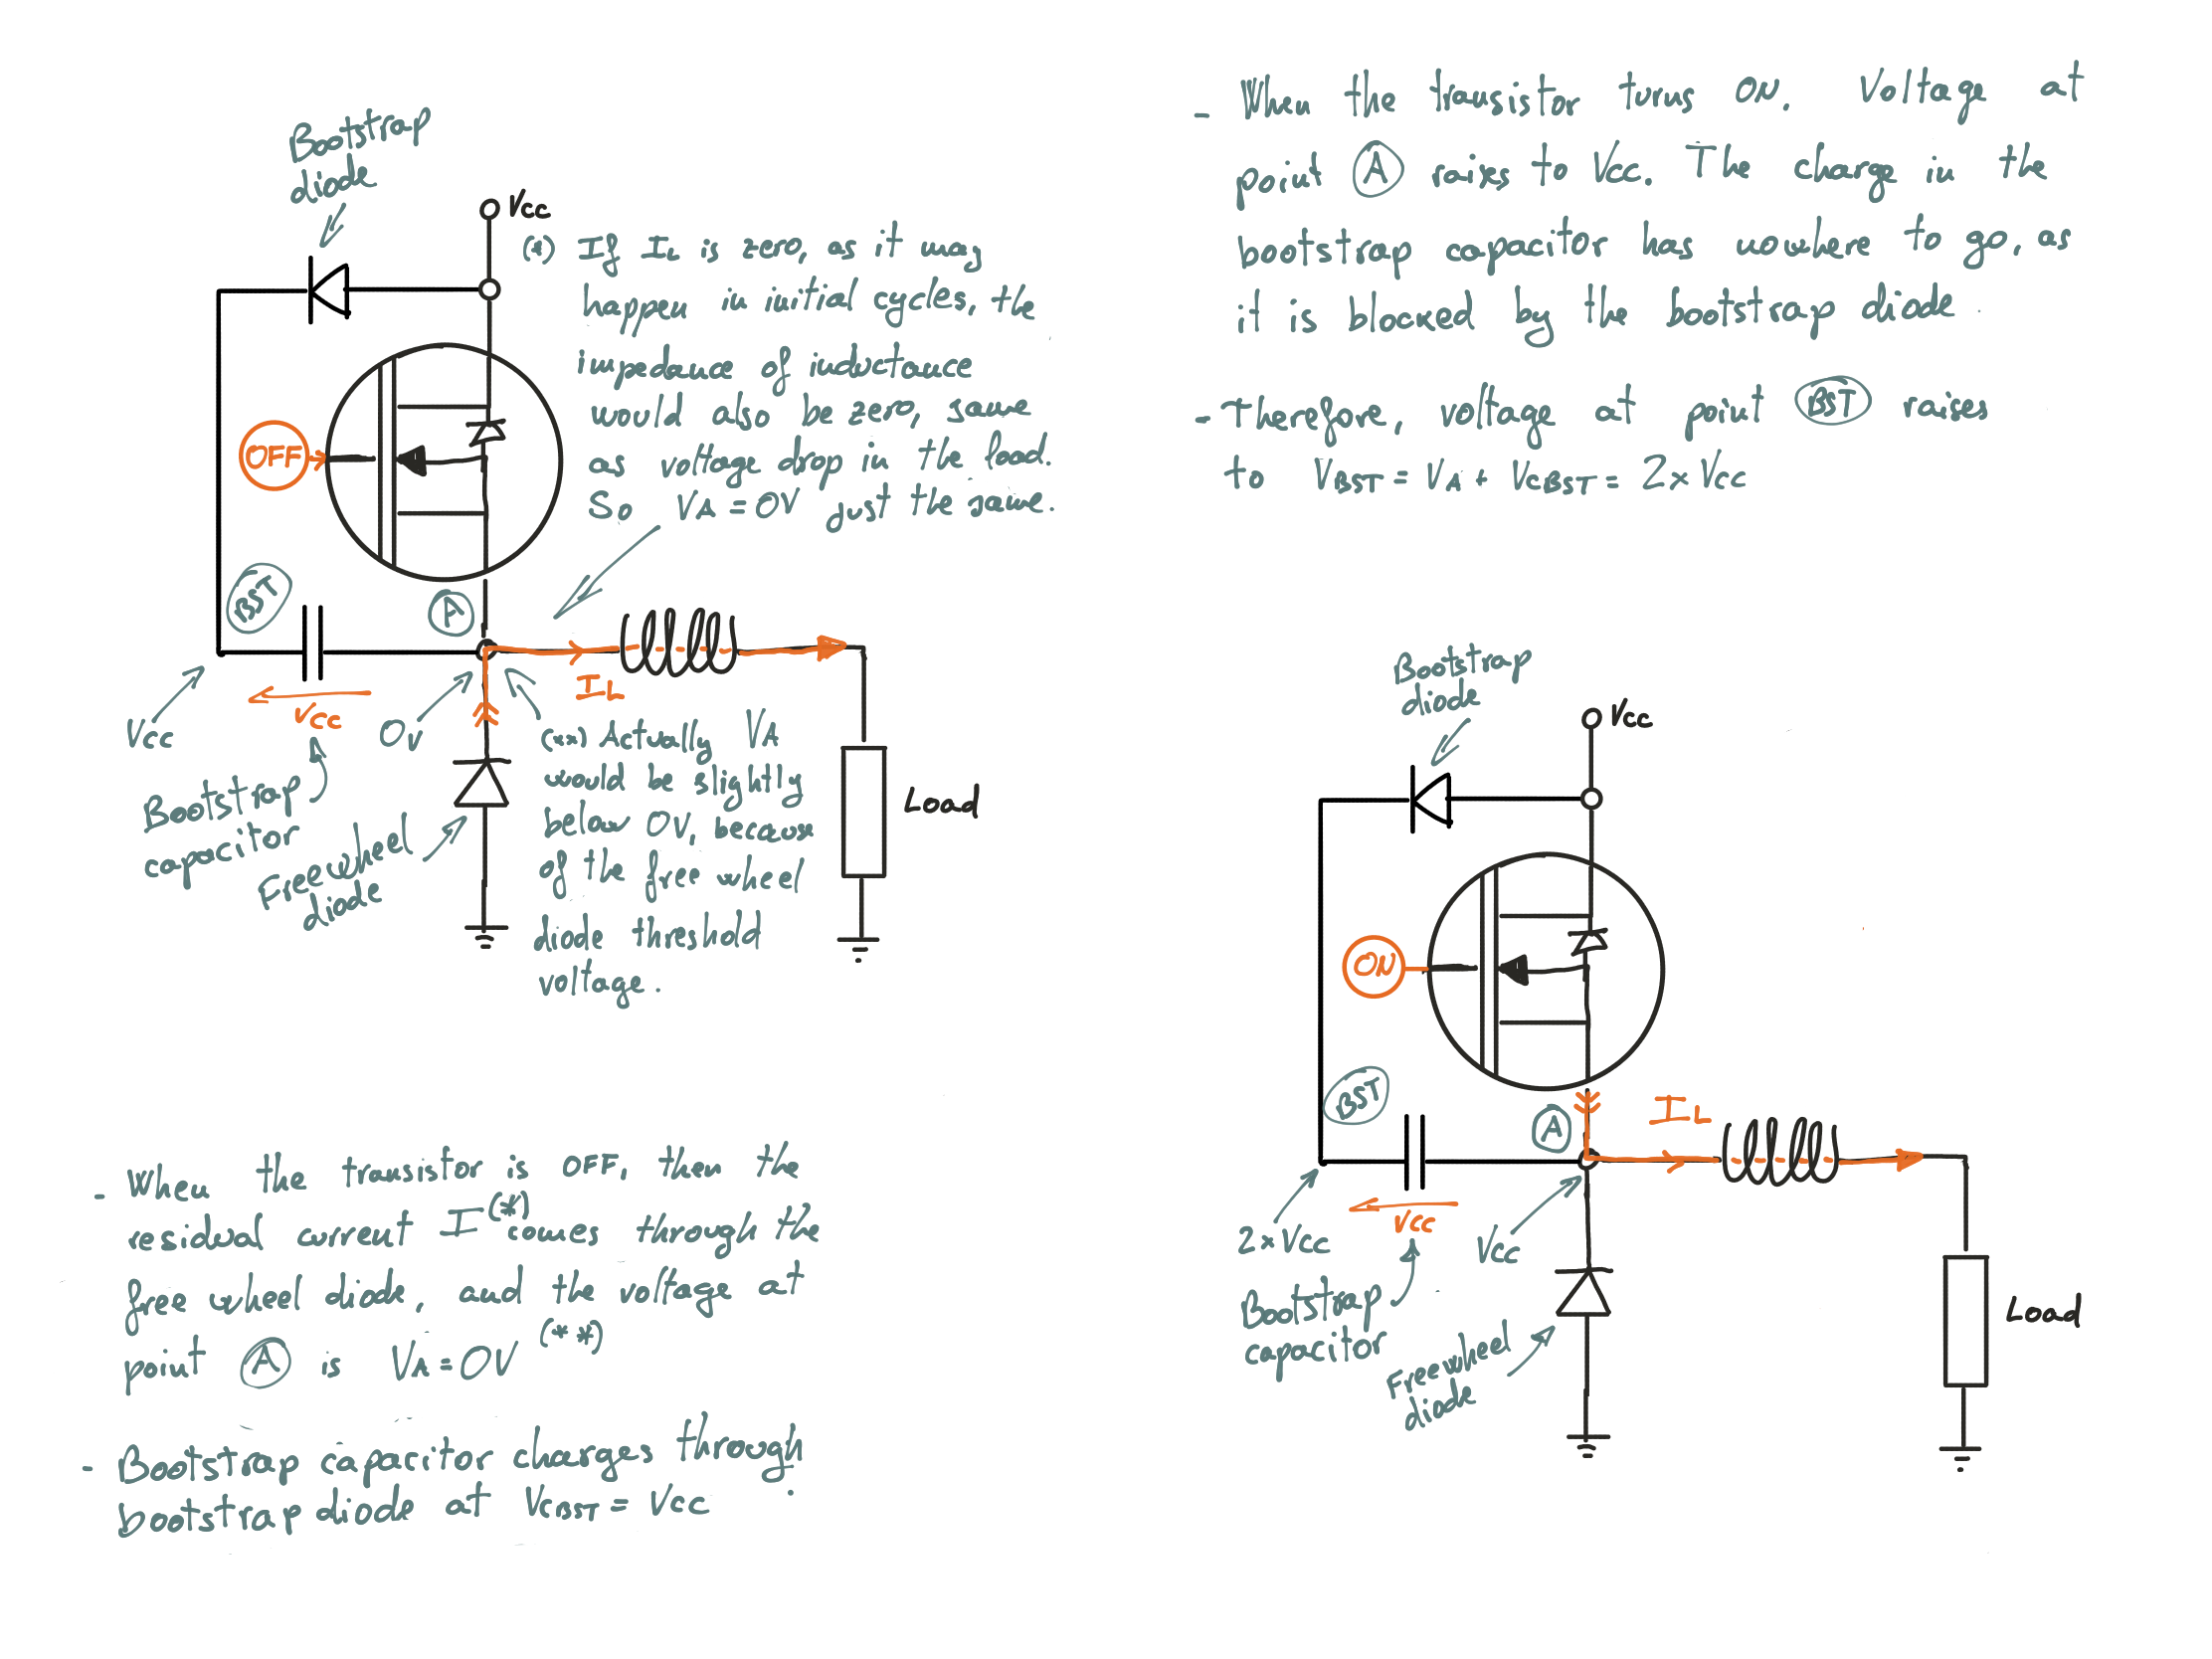 Bootstrap
diode
Vcc
(*) If IL is zero, as it may
happen in initial cycles, the
impedance of inductance
would also be zero, same
as voltage drop in the load.
So VA = 0V just the same.
OFF
BST
A
Vcc
Vcc
0v
IL
Bootstrap
capacitor
Freewheel
diode
(**) Actually VA
would be slightly
below 0V, because
of the free wheel
diode threshold
voltage.
Load
- When the transistor is OFF, then the
residual current I(*) comes through the
free wheel diode, and the voltage at
point A is VA = 0V (**)
- Bootstrap capacitor charges through
bootstrap diode at VCBST = Vcc.
- When the transistor turns ON. Voltage at
point A raises to Vcc. The charge in the
bootstrap capacitor has nowhere to go, as
it is blocked by the bootstrap diode.
- Therefore, voltage at point BST raises
to VBST = VA + VCBST = 2xVcc
Bootstrap
diode
Vcc
ON
BST
A
IL
2xVcc
Vcc
Vcc
Bootstrap
capacitor
Freewheel
diode
Load